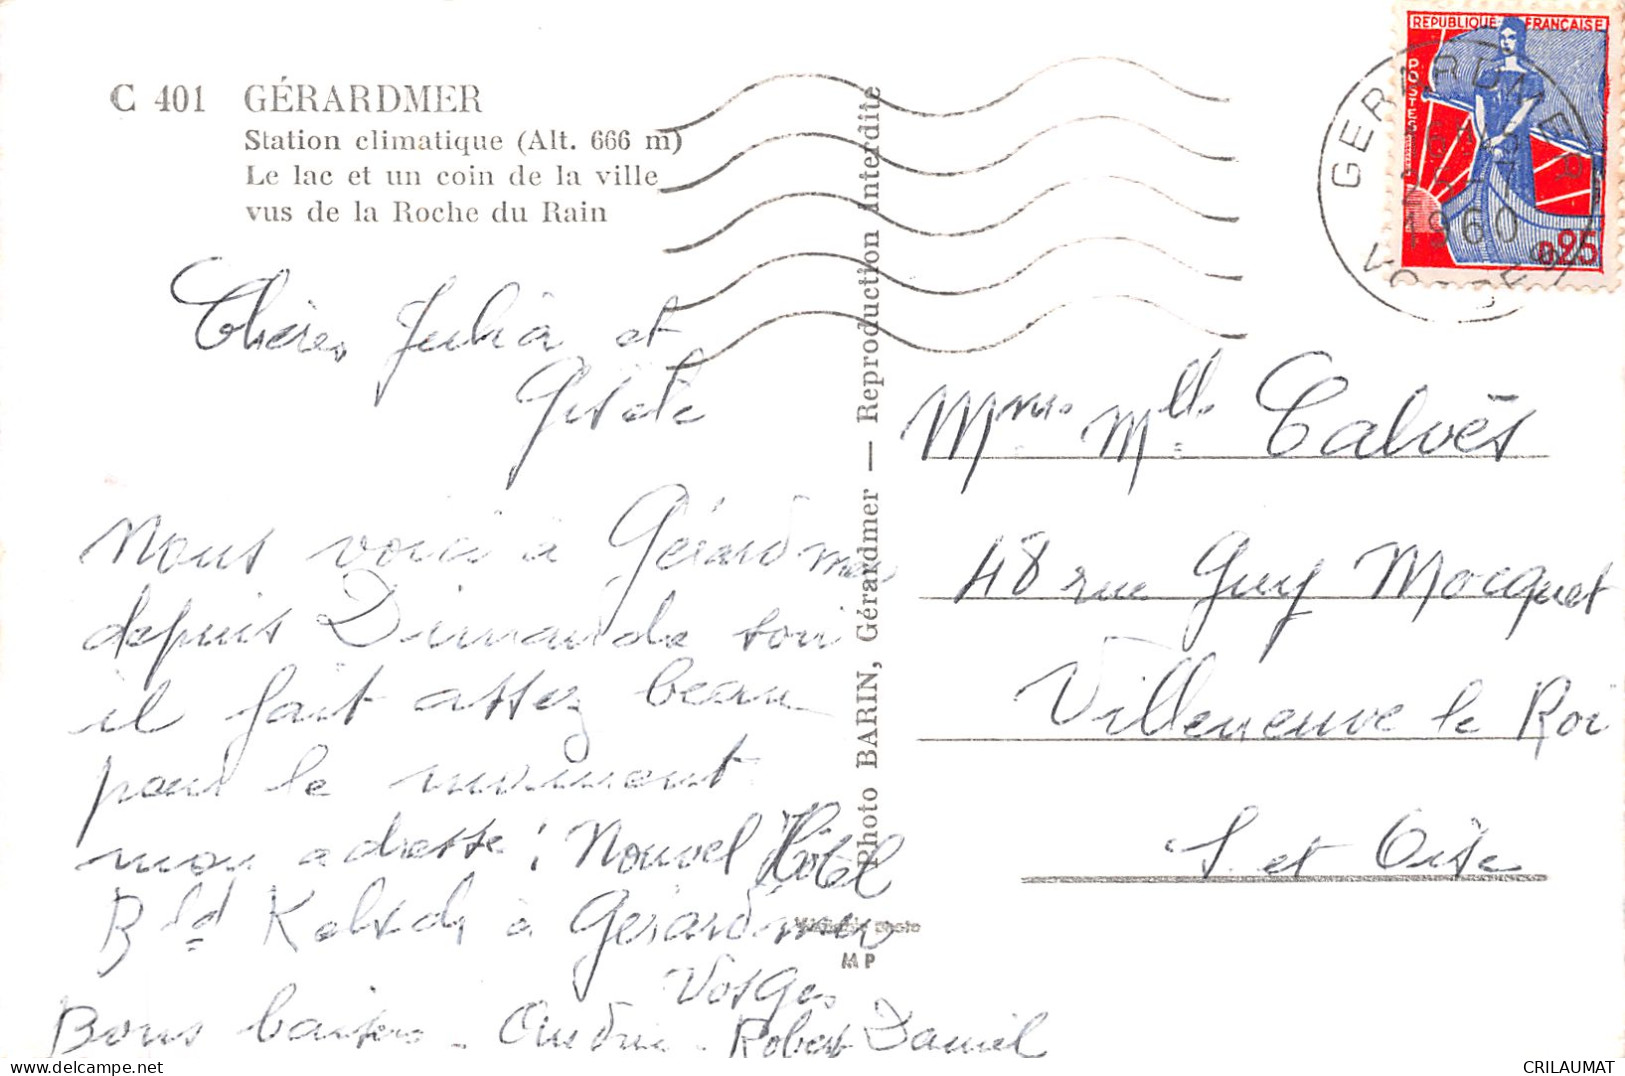 C 401 GÉRARDMER
Station climatique (Alt. 666 m)
Le lac et un coin de la ville
vus de la Roche du Rain
Chères Julia et
Gisèle
Nous voici à Gérardmer
depuis Dimanche soir
il fait assez beau
pour le moment
mon adresse : Nouvel Hôtel
Bld Kelsch à Gérardmer
Vosges
Bons baisers - - Robert Daniel
Photo BARIN, Gérardmer — Reproduction interdite
Véritable photo
MP
REPUBLIQUE FRANÇAISE
POSTES
0,25
GERARDMER
1960
VOSGES
Mme Mlle Calvès
48 rue Guy Mocquet
Villeneuve le Roi
S. et Oise
CRILAUMAT